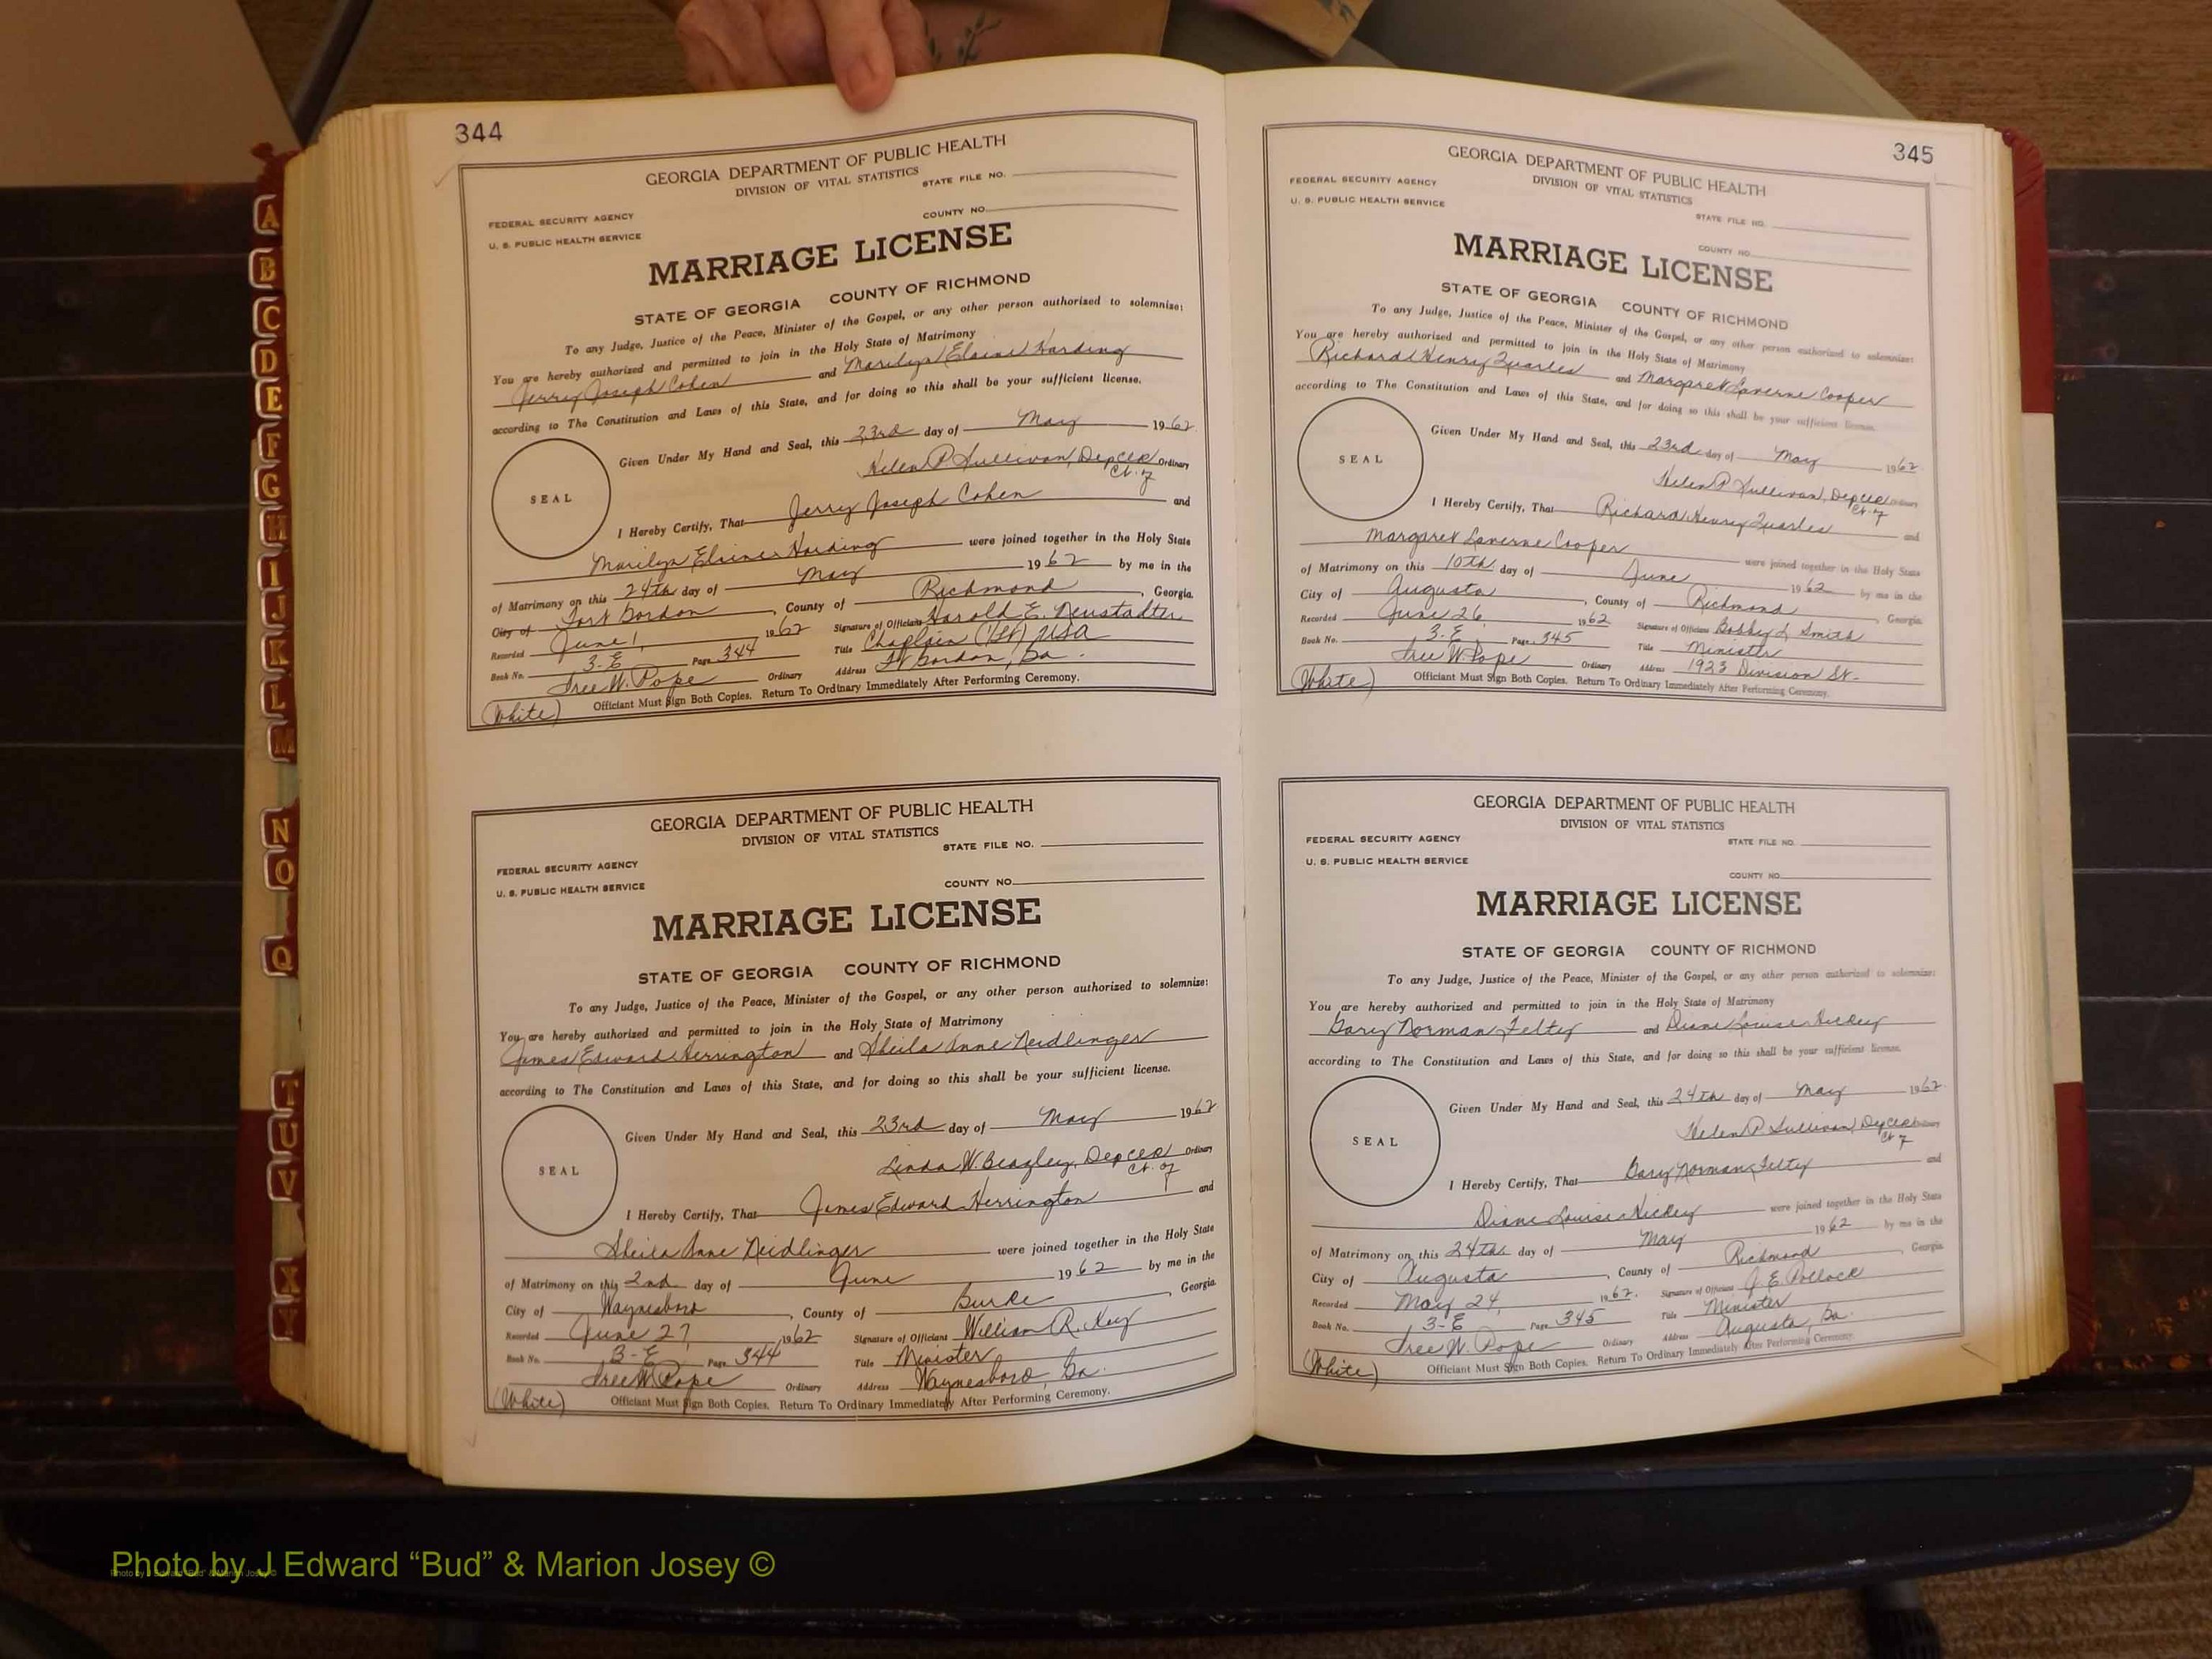 344
GEORGIA DEPARTMENT OF PUBLIC HEALTH
DIVISION OF VITAL STATISTICS
STATE FILE NO.
FEDERAL SECURITY AGENCY
COUNTY NO.
U. S. PUBLIC HEALTH SERVICE
MARRIAGE LICENSE
STATE OF GEORGIA COUNTY OF RICHMOND
To any Judge, Justice of the Peace, Minister of the Gospel, or any other person authorized to solemnize:
You are hereby authorized and permitted to join in the Holy State of Matrimony
Jerry Joseph Cohen and Marilyn Elaine Harding
according to The Constitution and Laws of this State, and for doing so this shall be your sufficient license.
Given Under My Hand and Seal, this 23rd day of May 1962
Helen P. Sullivan, Dep Clk Ordinary
Ct. of
SEAL
I Hereby Certify, That Jerry Joseph Cohen and
Marilyn Elaine Harding were joined together in the Holy State
of Matrimony on this 24th day of May 1962 by me in the
City of Fort Gordon, County of Richmond, Georgia.
Recorded June 1, 1962 Signature of Officiant Harold E. Neustadter
Book No. 3-E Page 344 Title Chaplain (1/Lt) USA
Tree W. Pope Ordinary Address Ft Gordon, Ga.
(White) Officiant Must Sign Both Copies. Return To Ordinary Immediately After Performing Ceremony.
GEORGIA DEPARTMENT OF PUBLIC HEALTH
DIVISION OF VITAL STATISTICS
STATE FILE NO.
FEDERAL SECURITY AGENCY
U. S. PUBLIC HEALTH SERVICE
COUNTY NO.
MARRIAGE LICENSE
STATE OF GEORGIA COUNTY OF RICHMOND
To any Judge, Justice of the Peace, Minister of the Gospel, or any other person authorized to solemnize:
You are hereby authorized and permitted to join in the Holy State of Matrimony
James Edward Herrington and Sheila Anne Neidlinger
according to The Constitution and Laws of this State, and for doing so this shall be your sufficient license.
Given Under My Hand and Seal, this 23rd day of May 1962
Linda W. Beazley, Dep Clk Ordinary
Ct. of
SEAL
I Hereby Certify, That James Edward Herrington and
Sheila Anne Neidlinger were joined together in the Holy State
of Matrimony on this 2nd day of June 1962 by me in the
City of Waynesboro, County of Burke, Georgia.
Recorded June 27, 1962 Signature of Officiant William R. Key
Book No. 3-E Page 344 Title Minister
Tree W. Pope Ordinary Address Waynesboro, Ga.
(White) Officiant Must Sign Both Copies. Return To Ordinary Immediately After Performing Ceremony.
345
GEORGIA DEPARTMENT OF PUBLIC HEALTH
DIVISION OF VITAL STATISTICS
FEDERAL SECURITY AGENCY
U. S. PUBLIC HEALTH SERVICE
STATE FILE NO.
COUNTY NO.
MARRIAGE LICENSE
STATE OF GEORGIA COUNTY OF RICHMOND
To any Judge, Justice of the Peace, Minister of the Gospel, or any other person authorized to solemnize:
You are hereby authorized and permitted to join in the Holy State of Matrimony
Richard Henry Quarles and Margaret Laverne Cooper
according to The Constitution and Laws of this State, and for doing so this shall be your sufficient license.
Given Under My Hand and Seal, this 23rd day of May 1962
Helen P. Sullivan, Dep Clk Ordinary
Ct. of
SEAL
I Hereby Certify, That Richard Henry Quarles and
Margaret Laverne Cooper were joined together in the Holy State
of Matrimony on this 10th day of June 1962 by me in the
City of Augusta, County of Richmond, Georgia.
Recorded June 26, 1962 Signature of Officiant Bobby L Smith
Book No. 3-E Page 345 Title Minister
Tree W. Pope Ordinary Address 1923 Division St.
(White) Officiant Must Sign Both Copies. Return To Ordinary Immediately After Performing Ceremony.
GEORGIA DEPARTMENT OF PUBLIC HEALTH
DIVISION OF VITAL STATISTICS
FEDERAL SECURITY AGENCY
STATE FILE NO.
U. S. PUBLIC HEALTH SERVICE
COUNTY NO.
MARRIAGE LICENSE
STATE OF GEORGIA COUNTY OF RICHMOND
To any Judge, Justice of the Peace, Minister of the Gospel, or any other person authorized to solemnize:
You are hereby authorized and permitted to join in the Holy State of Matrimony
Gary Norman Felty and Diane Louise Hickey
according to The Constitution and Laws of this State, and for doing so this shall be your sufficient license.
Given Under My Hand and Seal, this 24th day of May 1962
Helen P. Sullivan, Dep Clk Ordinary
Ct of
SEAL
I Hereby Certify, That Gary Norman Felty and
Diane Louise Hickey were joined together in the Holy State
of Matrimony on this 24th day of May 1962 by me in the
City of Augusta, County of Richmond, Georgia
Recorded May 24, 1962. Signature of Officiant J. E. Pollock
Book No. 3-E Page 345 Title Minister
Tree W. Pope Ordinary Address Augusta, Ga.
(White) Officiant Must Sign Both Copies. Return To Ordinary Immediately After Performing Ceremony.
A
B
C
D
E
F
G
H
I
J
K
L
M
N
O
Q
T
U
V
X
Y
Photo by J Edward “Bud” & Marion Josey ©
Photo by J Edward "Bud" & Marion Josey ©